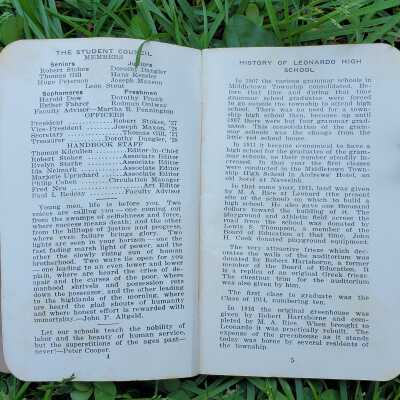 THE STUDENT COUNCIL
MEMBERS
Seniors Juniors
Robert Stokes Dorothy Dangler
Thomas Gill Hans Kessler
Hugo Peterson Joseph Maxon
Leon Stout
Sophomores Freshmen
Harold Dow Dorothy Frank
Esther Fahrer Rodman Conway
Faculty Adviser—Martha B. Pennington
OFFICERS
President Robert Stokes, '27
Vice-President Joseph Maxon, '28
Secretary Thomas Gill, '27
Treasurer Dorothy Dangler, '28
HANDBOOK STAFF
Thomas Kilcullen Editor-in-Chief
Robert Stokes Associate Editor
Evelyn Starin Associate Editor
Ida Neimark Associate Editor
Marjorie Uprichard Associate Editor
Philip Cohen Circulation Manager
Fred New Art Editor
Paul I. Redcay Faculty Adviser
Young men, life is before you. Two
voices are calling you—one coming out
from the swamps of selfishness and force,
where success means death; and the other
from the hilltops of justice and progress,
where even failure brings glory. Two
lights are seen in your horizon—one the
fast fading marsh light of power, and the
other the slowly rising sun of human
brotherhood. Two ways lie open for you
—one leading to an even lower and lower
plain, where are heard the cries of de-
spair and the curses of the poor, where
manhood shrivels and possession rots
down the possessor; and the other leading
to the highlands of the morning, where
are heard the glad shouts of humanity
and where honest effort is rewarded with
immortality.—John P. Altgeld.
Let our schools teach the nobility of
labor and the beauty of human service,
but the superstitions of the ages past—
never!—Peter Cooper.
HISTORY OF LEONARDO HIGH
SCHOOL
In 1907 the various grammar schools in
Middletown Township consolidated. Be-
fore that time and during that time
grammar school graduates were forced
to go outside the township to attend high
school. There was no need for a town-
ship high school then, because up until
1907 there were but four grammar grad-
uates. This consolidation of the gram-
mar schools was the change from the
little red school house.
In 1911 it became economical to have a
high school for the graduates of the gram-
mar schools, as their number steadily in-
creased. In this year the first classes
were conducted in the Middletown Town-
ship High School in Andrews Hotel, an
hotel in Navesink.
In that same year, 1911, land was given
by M. A. Rice at Leonard (the present
site of the school) on which to build a
high school. He also gave one thousand
dollars toward the building of it. The
playground and athletic field across the
road from the school was donated by
Lewis S. Thompson, a member of the
Board of Education at that time. John
H. Cook donated playground equipment.
The very attractive frieze which dec-
orates the walls of the auditorium was
donated by Robert Hartshorne, a former
member of the Board of Education. It
is a replica of an original Greek frieze.
The chestnut trim for the auditorium
was also given by him.
The first class to graduate was the
Class of 1914, numbering ten.
In 1916 the original greenhouse was
given by Robert Hartshorne and com-
pleted by M. A. Rice. When brought to
Leonardo it was practically rebuilt. The
expense of the greenhouse as it stands
today was borne by several residents of
the township.
5